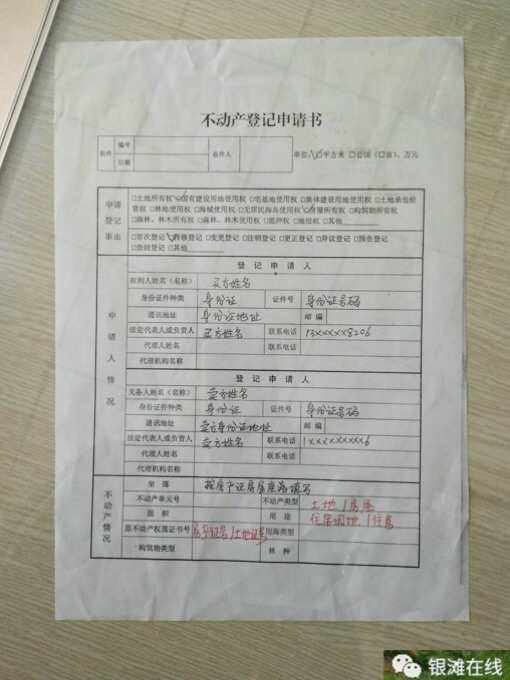 不动产登记申请书
收件 编号 收件人 单位：☑平方米 □公顷（□亩）、万元
日期
申请登记事由 □土地所有权 ☑国有建设用地使用权 □宅基地使用权 □集体建设用地使用权 □土地承包经
营权 □林地使用权 □海域使用权 □无居民海岛使用权 ☑房屋所有权 □构筑物所有权
□森林、林木所有权 □森林、林木使用权 □抵押权 □地役权 □其他
□首次登记 ☑转移登记 □变更登记 □注销登记 □更正登记 □异议登记 □预告登记
□查封登记 □其他
申请人情况
登记申请人
权利人姓名（名称） 买方姓名
身份证件种类 身份证 证件号 身份证号码
通讯地址 身份证地址 邮编
法定代表人或负责人 买方姓名 联系电话 13xxxxxx8206
代理人姓名 联系电话
代理机构名称
登记申请人
义务人姓名（名称） 卖方姓名
身份证件种类 身份证 证件号 身份证号码
通讯地址 卖方身份证地址 邮编
法定代表人或负责人 卖方姓名 联系电话 1xxxxxxxxx6
代理人姓名 联系电话
代理机构名称
不动产情况
坐落 按房产证房屋座落填写
不动产单元号 不动产类型 土地/房屋
面积 用途 住宅用地/住宅
原不动产权属证书号 房产证号/土地证号 用海类型
构筑物类型 林种
银滩在线